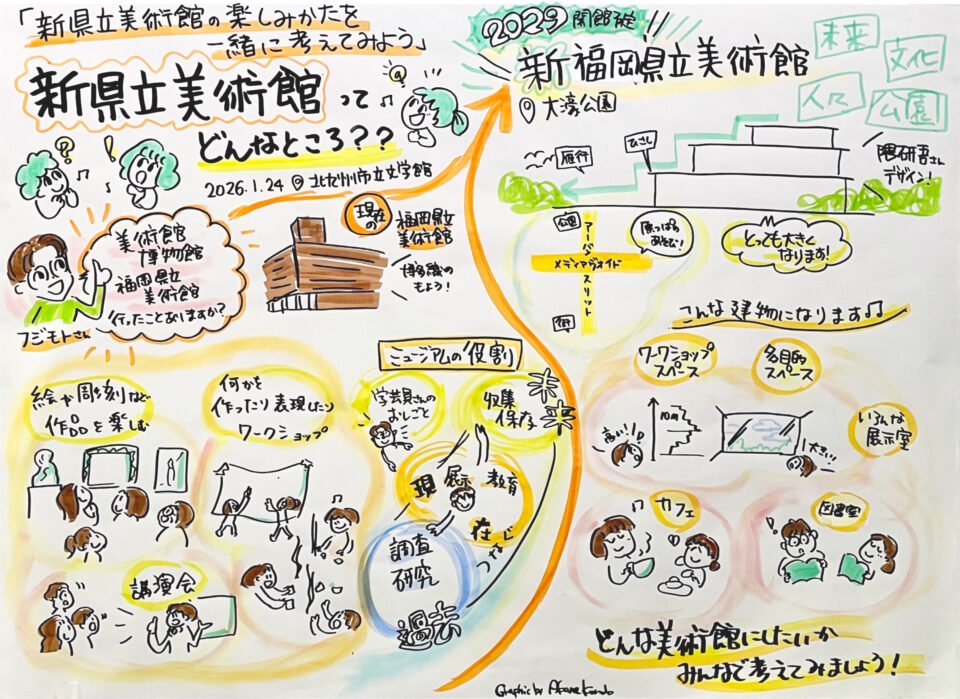 「新県立美術館の楽しみかたを
一緒に考えてみよう」
新県立美術館って
どんなところ??
2026.1.24 北九州市立文学館
現在の
福岡県立
美術館
博多織の
もよう!
美術館
博物館
福岡県立
美術館
行ったことありますか?
フジモトさん
絵や彫刻など
作品を楽しむ
何かを
作ったり表現したり
ワークショップ
講演会
ミュージアムの役割
学芸員さんの
おしごと
収集
保存
未来
展示
教育
現在
調査
研究
過去
2029 開館予定
新福岡県立美術館
大濠公園
未来
文化
人々
公園
雁行
ひさし
隈研吾さん
デザイン!
公園
アーバン
メディアヴォイド
スリット
街
原っぱで
あそぶ!
とっても大きく
なります!
こんな建物になります♫
ワークショップ
スペース
多目的
スペース
いろんな
展示室
高い!!
10m
大きい!!
カフェ
図書室
どんな美術館にしたいか
みんなで考えてみましょう!
Graphic by Akane Kondo